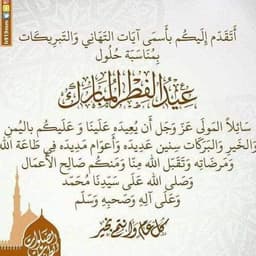 أَتَقَدَّم إِلَيكُم بأَسمَى آيَات التَّهَانِي وَالتَّبرِيكَات
بِمُنَاسَبَة حُلُول
عِيدُ الفِطْرِ المُبَارَك
سَائِلاً المَولَى عَزَّ وَجَل أَن يُعِيدَه عَلَينَا وَ عَلَيكُم باليُمن
وَالخَير وَالبَرَكَات سِنِين عَدِيدَه وَأَعوَام مَدِيدَه فِي طَاعَة الله
وَ مَرضَاتِه وَتَقَبَّل الله مِنَّا وَمَنكُم صَالِح الأَعمَال
وَصَلى الله عَلَى سَيِّدِنَا مُحَمَّد
وَعَلَى آلِه وَصَحبِه وَسَلَّم
كل عام وأنتم بخير